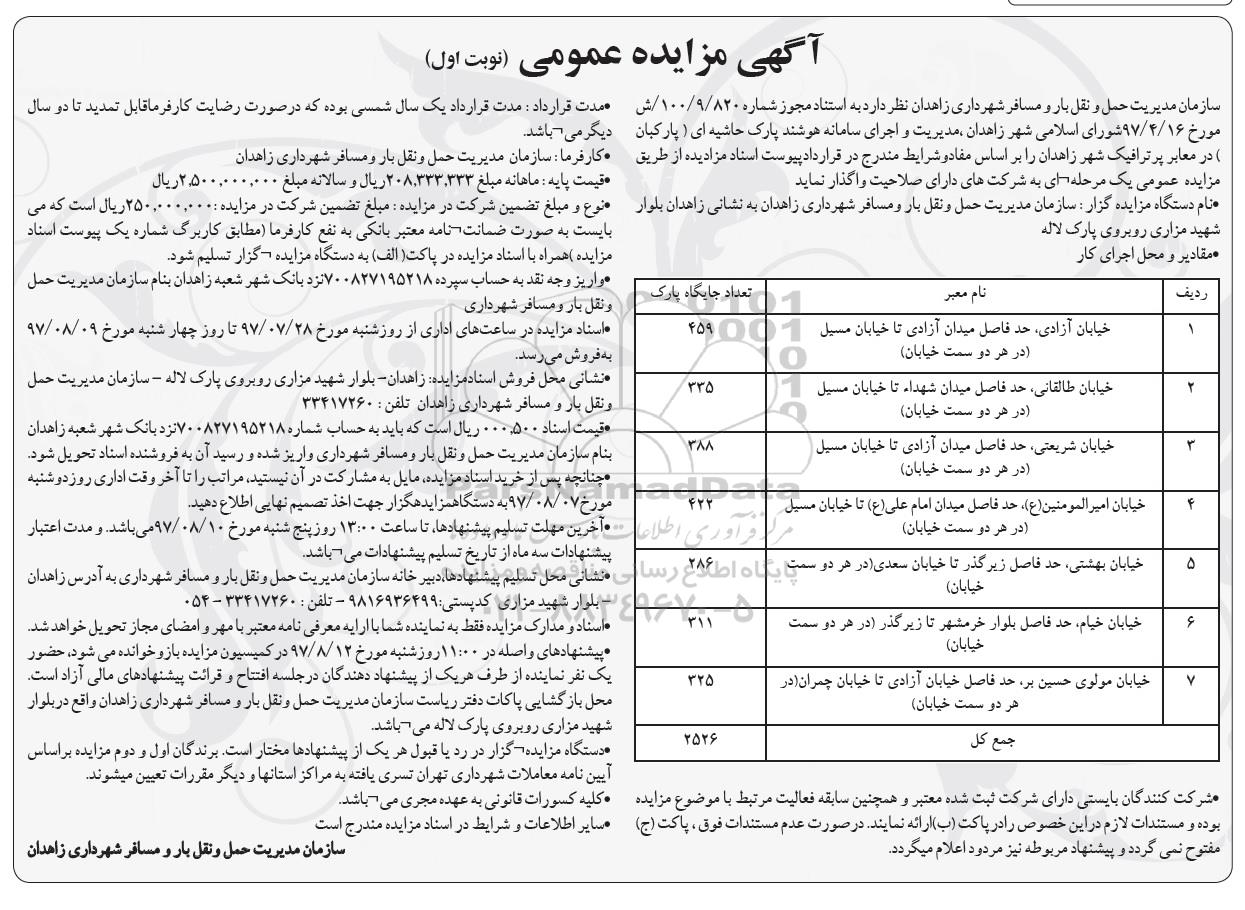 آگهی مزایده عمومی (نوبت اول)
سازمان مدیریت حمل و نقل بار و مسافر شهرداری زاهدان نظر دارد به استناد مجوز شماره ۱۰۰/۹/۸۲۰/ش
مورخ ۹۷/۴/۱۶شورای اسلامی شهر زاهدان ،مدیریت و اجرای سامانه هوشند پارک حاشیه ای ( پارکبان
) در معابر پرترافیک شهر زاهدان را بر اساس مفادوشرایط مندرج در قراردادپیوست اسناد مزادیده از طریق
مزایده عمومی یک مرحله¬ای به شرکت های دارای صلاحیت واگذار نماید
•نام دستگاه مزایده گزار : سازمان مدیریت حمل ونقل بار ومسافر شهرداری زاهدان به نشانی زاهدان بلوار
شهید مزاری روبروی پارک لاله
•مقادیر و محل اجرای کار
ردیف نام معبر تعداد جایگاه پارک
۱ خیابان آزادی، حد فاصل میدان آزادی تا خیابان مسیل ۴۵۹
(در هر دو سمت خیابان)
۲ خیابان طالقانی، حد فاصل میدان شهداء تا خیابان مسیل ۳۳۵
(در هر دو سمت خیابان)
۳ خیابان شریعتی، حد فاصل میدان آزادی تا خیابان مسیل ۳۸۸
(در هر دو سمت خیابان)
۴ خیابان امیرالمومنین(ع)، حد فاصل میدان امام علی(ع) تا خیابان مسیل ۴۲۲
(در هر دو سمت خیابان)
۵ خیابان بهشتی، حد فاصل زیرگذر تا خیابان سعدی(در هر دو سمت ۲۸۶
خیابان)
۶ خیابان خیام، حد فاصل بلوار خرمشهر تا زیرگذر (در هر دو سمت ۳۱۱
خیابان)
۷ خیابان مولوی حسین بر، حد فاصل خیابان آزادی تا خیابان چمران(در ۳۲۵
هر دو سمت خیابان)
جمع کل ۲۵۲۶
•شرکت کنندگان بایستی دارای شرکت ثبت شده معتبر و همچنین سابقه فعالیت مرتبط با موضوع مزایده
بوده و مستندات لازم دراین خصوص رادرپاکت (ب)ارائه نمایند. درصورت عدم مستندات فوق ، پاکت (ج)
مفتوح نمی گردد و پیشنهاد مربوطه نیز مردود اعلام میگردد.
•مدت قرارداد : مدت قرارداد یک سال شمسی بوده که درصورت رضایت کارفرماقابل تمدید تا دو سال
دیگر می¬باشد.
•کارفرما : سازمان مدیریت حمل ونقل بار ومسافر شهرداری زاهدان
•قیمت پایه : ماهانه مبلغ ۲۰۸,۳۳۳,۳۳۳ریال و سالانه مبلغ ۲,۵۰۰,۰۰۰,۰۰۰ریال
•نوع و مبلغ تضمین شرکت در مزایده : مبلغ تضمین شرکت در مزایده :۲۵۰,۰۰۰,۰۰۰ریال است که می
بایست به صورت ضمانت¬نامه معتبر بانکی به نفع کارفرما (مطابق کاربرگ شماره یک پیوست اسناد
مزایده )همراه با اسناد مزایده در پاکت( الف) به دستگاه مزایده ¬گزار تسلیم شود.
•واریز وجه نقد به حساب سپرده ۷۰۰۸۲۷۱۹۵۲۱۸نزد بانک شهر شعبه زاهدان بنام سازمان مدیریت حمل
ونقل بار ومسافر شهرداری
•اسناد مزایده در ساعت‌های اداری از روزشنبه مورخ ۹۷/۰۷/۲۸ تا روز چهار شنبه مورخ ۹۷/۰۸/۰۹
به‌فروش می‌رسد.
•نشانی محل فروش اسنادمزایده: زاهدان- بلوار شهید مزاری روبروی پارک لاله – سازمان مدیریت حمل
ونقل بار و مسافر شهرداری زاهدان تلفن : ۳۳۴۱۷۲۶۰
•قیمت اسناد ۰۰۰,۵۰۰ ریال است که باید به حساب شماره ۷۰۰۸۲۷۱۹۵۲۱۸نزد بانک شهر شعبه زاهدان
بنام سازمان مدیریت حمل ونقل بار ومسافر شهرداری واریز شده و رسید آن به فروشنده اسناد تحویل شود.
•چنانچه پس از خرید اسناد مزایده، مایل به مشارکت در آن نیستید، مراتب را تا آخر وقت اداری روز دوشنبه
مورخ۹۷/۰۸/۰۷به دستگاهمزایدهگزار جهت اخذ تصمیم نهایی اطلاع دهید.
•آخرین مهلت تسلیم پیشنهادها، تا ساعت ۱۳:۰۰ روز پنج شنبه مورخ ۹۷/۰۸/۱۰می‌باشد. و مدت اعتبار
پیشنهادات سه ماه از تاریخ تسلیم پیشنهادات می¬باشد.
•نشانی محل تسلیم پیشنهادها،دبیر خانه سازمان مدیریت حمل ونقل بار و مسافر شهرداری به آدرس زاهدان
– بلوار شهید مزاری کدپستی:۹۸۱۶۹۳۶۴۹۹ – تلفن : ۳۳۴۱۷۲۶۰ – ۰۵۴
•اسناد و مدارک مزایده فقط به نماینده شما با ارایه معرفی نامه معتبر با مهر و امضای مجاز تحویل خواهد شد.
•پیشنهادهای واصله در ۱۱:۰۰روزشنبه مورخ ۹۷/۸/۱۲ در کمیسیون مزایده بازو خوانده می شود، حضور
یک نفر نماینده از طرف هریک از پیشنهاد دهندگان درجلسه افتتاح و قرائت پیشنهادهای مالی آزاد است.
محل بازگشایی پاکات دفتر ریاست سازمان مدیریت حمل ونقل بار و مسافر شهرداری زاهدان واقع دربلوار
شهید مزاری روبروی پارک لاله می¬باشد.
•دستگاه مزایده¬گزار در رد یا قبول هر یک از پیشنهادها مختار است. برندگان اول و دوم مزایده براساس
آیین نامه معاملات شهرداری تهران تسری یافته به مراکز استانها و دیگر مقررات تعیین میشوند.
•کلیه کسورات قانونی به عهده مجری می¬باشد.
•سایر اطلاعات و شرایط در اسناد مزایده مندرج است
سازمان مدیریت حمل ونقل بار و مسافر شهرداری زاهدان
ParsNamadData
پایگاه اطلاع رسانی مناقصه و مزایده
۰۲۱-۸۸۳۴۹۶۷۰-۵